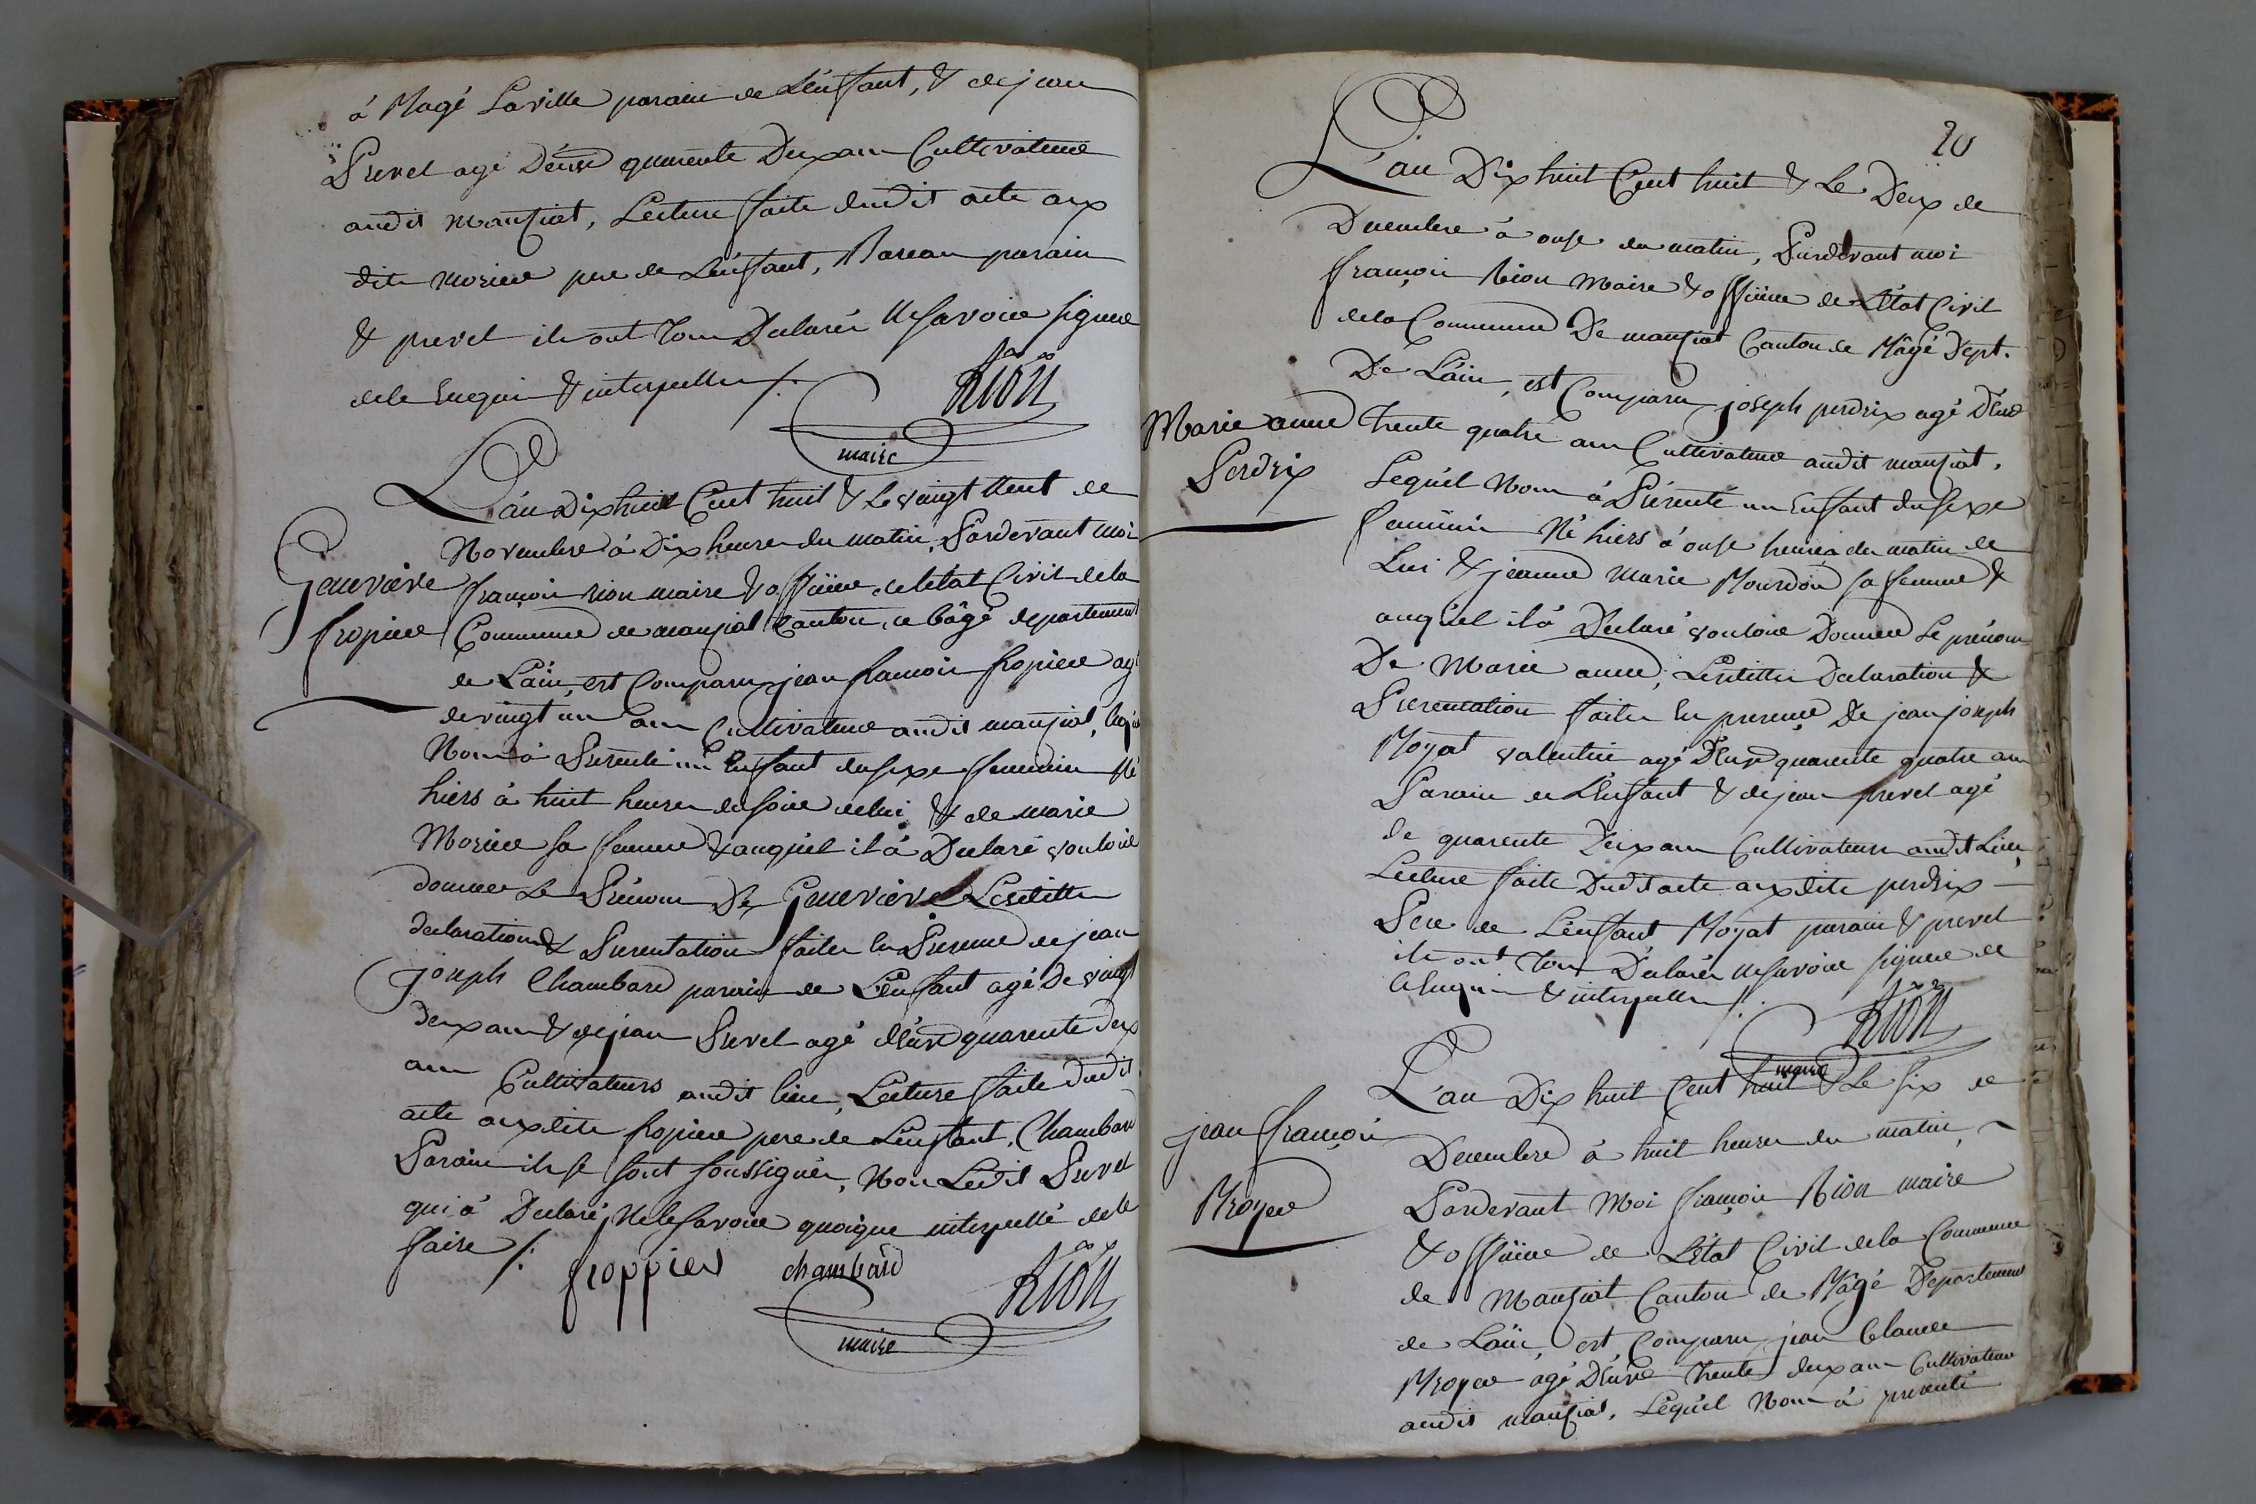 à Bagé Laville parain de L'enfant, & de jean
Prevel agé D'envi quarente Deux ans Cultivateur
audit manziat, Lecture faite dudit acte aux
dits morier pere de L'enfant, Bareau parain
& prevel ils ont Tous Declarés Ne Savoire signer
de le Enquis & interpellés /.
Rion
maire
L'an Dix huit Cent huit & Le vingt Neuf de
Novembre à Dix heures du matin, Pardevant moi
Genevieve
françois rion maire & officier de létat Civil de la
fropier
Commune de manziat Canton de bâgé departement
de L'ain, est Comparu jean françois fropier agé
de vingt un ans Cultivateur audit manziat, lequel
Nous à Presenté un Enfant du sexe feminin Né
hiers à huit heures du soire de lui & de marie
Morier sa femme & auquel il à Declaré vouloire
donner Le Prénom De Genevieve Lesdittes
declaration & Presentation faites en Presence de jean
joseph Chambard parain de L'enfant agé De vingt
deux ans & de jean Prevel agé d'Envi quarente deux
ans Cultivateurs audit lieu, Lecture faite dudit
acte aux dits fropier pere de L'enfant, Chambard
Parain ils se sont soussignés, Non Ledit Prevel
qui à Declaré Ne le savoire quoique interpellé de le
faire /.
froppier chambard Rion
maire
20
L'an Dix huit Cent huit & Le Deux de
Decembre à onse du matin, Pardevant moi
françois Rion Maire & officier de L'état Civil
de la Commune De manziat Canton de Bâgé Dept.
De L'ain, est Comparu joseph perdrix agé D'Envi
Marie anne
trente quatre ans Cultivateur audit manziat,
Perdrix
Lequél Nous à Présenté un Enfant du sexe
feminin Né hiers à onse heures du matin de
Lui & jeanne Marie Bourdon sa femme &
auquél il à Declaré vouloire Donner Le prénom
De Marie anne, Lesdittes Declaration &
Presentation faites En presence De jean joseph
Boyat valentin agé D'Envi quarente quatre ans
Parain de L'Enfant & de jean prevel agé
de quarente Deux ans Cultivateurs audit Lieu,
Lecture faite Dudit acte aux dits perdrix
Pere de L'enfant Boyat parain & prevel
ils ont Tous Déclarés Ne Savoire signer de
ce Enquis & interpellés /.
Rion
maire
L'an Dix huit Cent huit & Le six de
jean françois
Decembre à huit heures du matin,
Broyer
Pardevant Moi françois Rion maire
& officier de L'état Civil de la Commune
de Manziat Canton de Bâgé Departement
de L'ain, est Comparu jean Claude
Broyer agé D'Envi trente deux ans Cultivateur
audit manziat, Lequél Nous à presenté